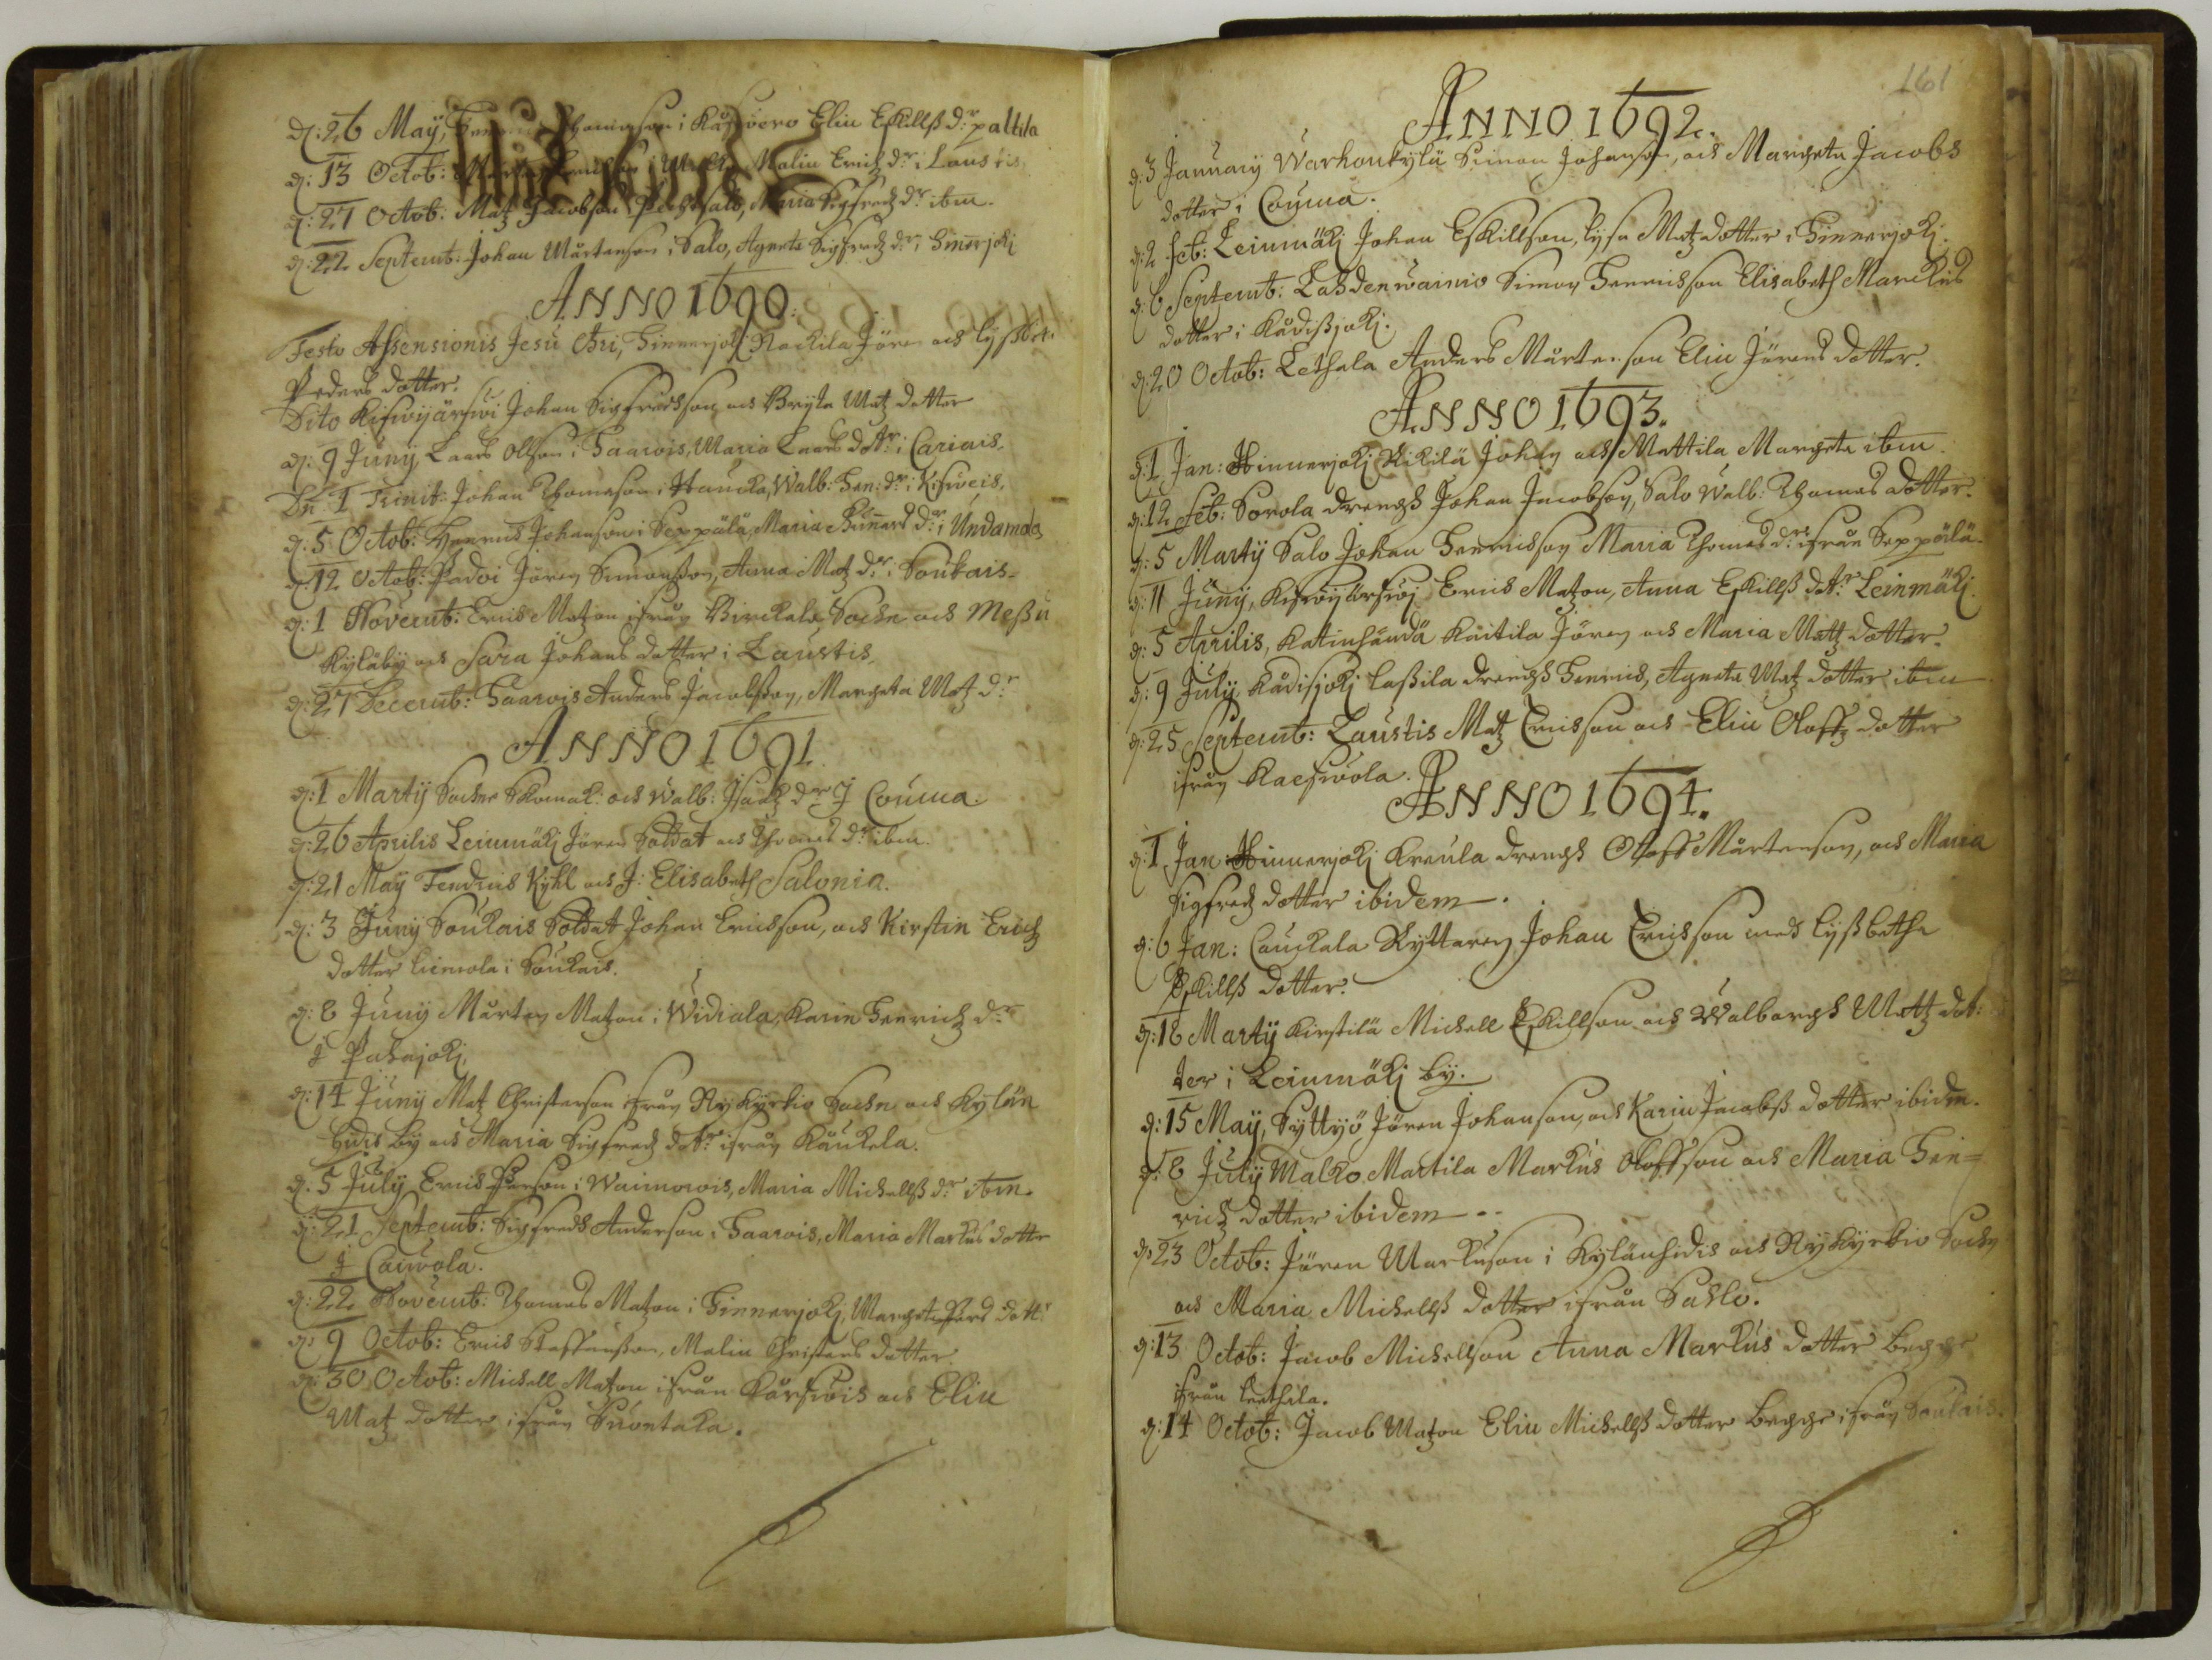 d: 26 Maÿ, Thomason i Elin Eskillß d:r paltila
d: 13 Octob: Malin Erichz d:r i Laustis
d: 27 Octob. Matz Jacobson Maria Sigfredz d:r ibm.
d: 22 Septemb: Johan Mårtenson i Salo, Agneta Sigfredz d:r i Hinerjokj
ANNO 1690.
Festo Assensionis Jesu Chri, Hinnerjokj Rackila Jören och Lyßbet
Peders dotter.
Dito Kiswijärfwi Johan Sigfredsson och Bryta Matz dotter
d: 9 Junÿ Lars Olsson i Saarois, Maria Lars dotr i Cariais.
Dn. 1 Trinit: Johan Thomason i Haucka, Walb: Hen: d:r i Kisweis.
d. 5 Octob: Henrich Johanson i Seppälä, Maria d:r i Undamola
d. 12 Octob: Padoi Jören Simonson, Anna Matz d:r i Soukais.
d: 1 Novemb: Erich Matzon ifrån Birckala Sochn och Meßu
Kyläby och Sara Johans dotter i Laustis.
d: 27 Decemb: Saarois Anders Jacobsson, Margeta Matz d:r
ANNO 1691.
d: 1 Martÿ Sochne Skomak: och Walb: Isaachz d:r J Couma.
d: 26 Aprilis Leinmäkj Jören Soldat och Thomas d:r ibm.
d: 21 Maÿ Fendrich Kyhl och J: Elisabeth Salonia.
d: 3 Junÿ Soukais Soldat Johan Ericsson, och Kirstin Erichz
dotter i Soukais.
d: 8 Junÿ Mårten Matzon i Widiala, Karin Henrichz d:r
J Pahajokj.
d: 14 Junÿ Matz Christerson ifrån Nykyrkio Sochn och Kylän
hidis by och Maria Sigfredz dotr ifrån Käukela.
d. 5 Julÿ Erich i Wainiorois, Maria Michellß d:r ibm.
d: 21 Septemb: Sigfredh Anderson i Saarois, Maria Markus dotter
J Cauwola.
d: 22 Novemb: Thomas Matzon i Hinnerjokj, Margeta Pers dott:
d: 9 Octob: Erich Staffansson, Malin Christers dotter
d: 30 Octob: Michell Matzon ifrån Kårfwois och Elin
Matz dotter ifrån Suontaka.
161
ANNO 1692.
d. 3 Januarÿ Warhonkylä Simon Johanson, och Margeta Jacobs
dotter i Couma.
d: 2 Feb: Leinmäkj Johan Eskillson, Lysa Matz dotter i Hinnerjokj.
d. 6 Septemb: Lahdenwainio Simon Henrichsson Elisabeth Markus
dotter i Kådißjokj.
d. 20 Octob: Lethala Anders Mårtenson Elin Jörens dotter.
ANNO 1693.
d. 1 Jan: Hinnerjokj Kikilä Johan och Mattila Margeta ibm.
d: 12 Feb: Sorola drengh Johan Jacobson, Salo Walb: Thomas dotter.
d: 5 Martÿ Salo Johan Henrichson Maria Thomas d:r ifrån Seppälä.
d: 11 Junÿ, Kiswijärfwj Erich Matzon, Anna Eskillß dotr Leinmäkj.
d: 5 Aprilis, Katinhändä Kaitila Jören och Maria Mattz dotter.
d: 9 Julÿ Kådisjokj Laßila drengh Henrich, Agneta Matz dotter ibm
d: 25 Septemb: Laustis Matz Ericsson och Elin Oloffz dotter
ifrån Kaeswola.
ANNO 1694.
d: 1 Jan: Hinnerjokj Kreula drengh Oloff Mårtenson, och Maria
Sigfredz dotter ibidem.
d: 6 Jan: Cauckala Ryttaren Johan Ericsson med Lyßbetha
Eskillß dotter.
d: 18 Martÿ Kirstilä Michell Eskillson och Walborgh Mattz dot:
ter i Leinmäkj by.
d: 15 Maÿ, Syttyö Jören Johanson, och Karin Jacobß dotter ibidm.
d: 8 Julÿ Malko Martila Markus Oloffson och Maria Hen=
richz dotter ibidem.
d: 23 Octob: Jören Markuson i Kylänhidis och Nykyrkio Sochn
och Maria Michellß dotter ifrån Sahlo.
d: 13 Octob: Jacob Michellson Anna Markus dotter begge
ifrån Leethila.
d: 14 Octob: Jacob Matzon Elin Michellß dotter begge ifrån Soukais.